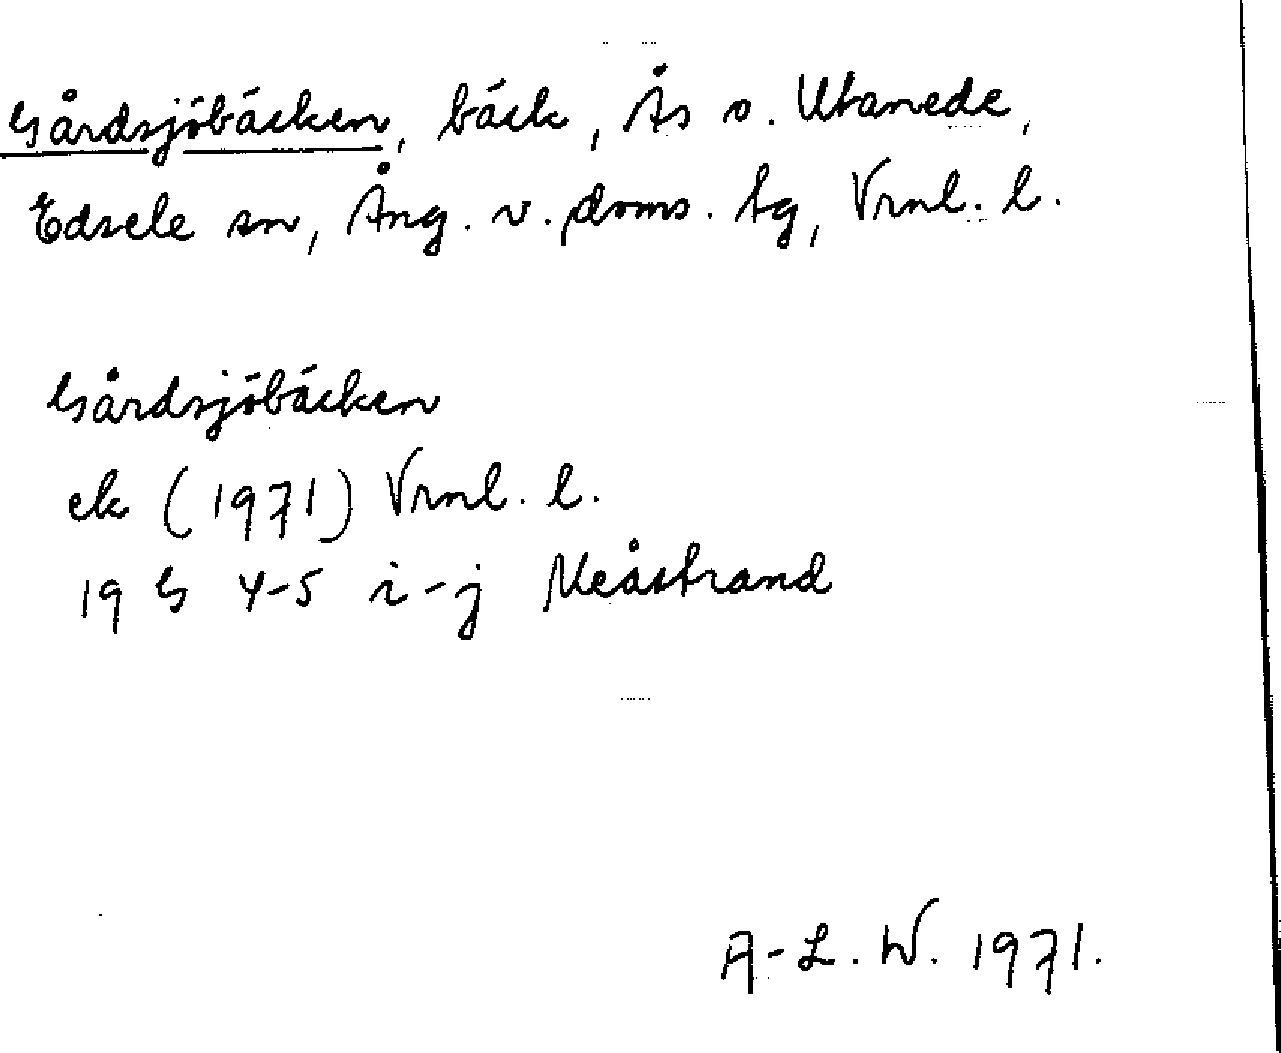 Gårdsjöbäcken, bäck, Ås o. Utanede,
Edsele sn, Ång. v. doms. tg, Vrnl. l.
Gårdsjöbäcken
ek (1971) Vrnl. l.
19 G 4-5 i-j Meåstrand
A-L. W. 1971.